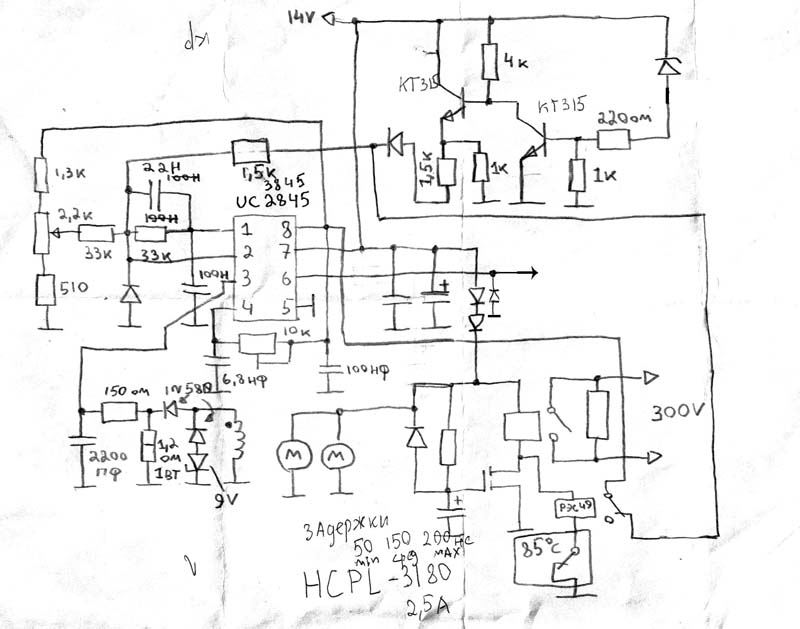 14V
4к
КТ315
КТ315
220ом
1к
1к
1,5к
1,5к
3845
UC2845
22Н
100Н
100Н
1,3к
2,2к
33к
33к
510
1 8
2 7
3 6
4 5
100Н
10к
6,8нф
100нф
150ом
1N58
2200
пф
1,2
ом
1вт
9V
M M
300V
РЭС49
85°C
Задержки
50 150 200нс
min сред max
HCPL-3180
2,5A